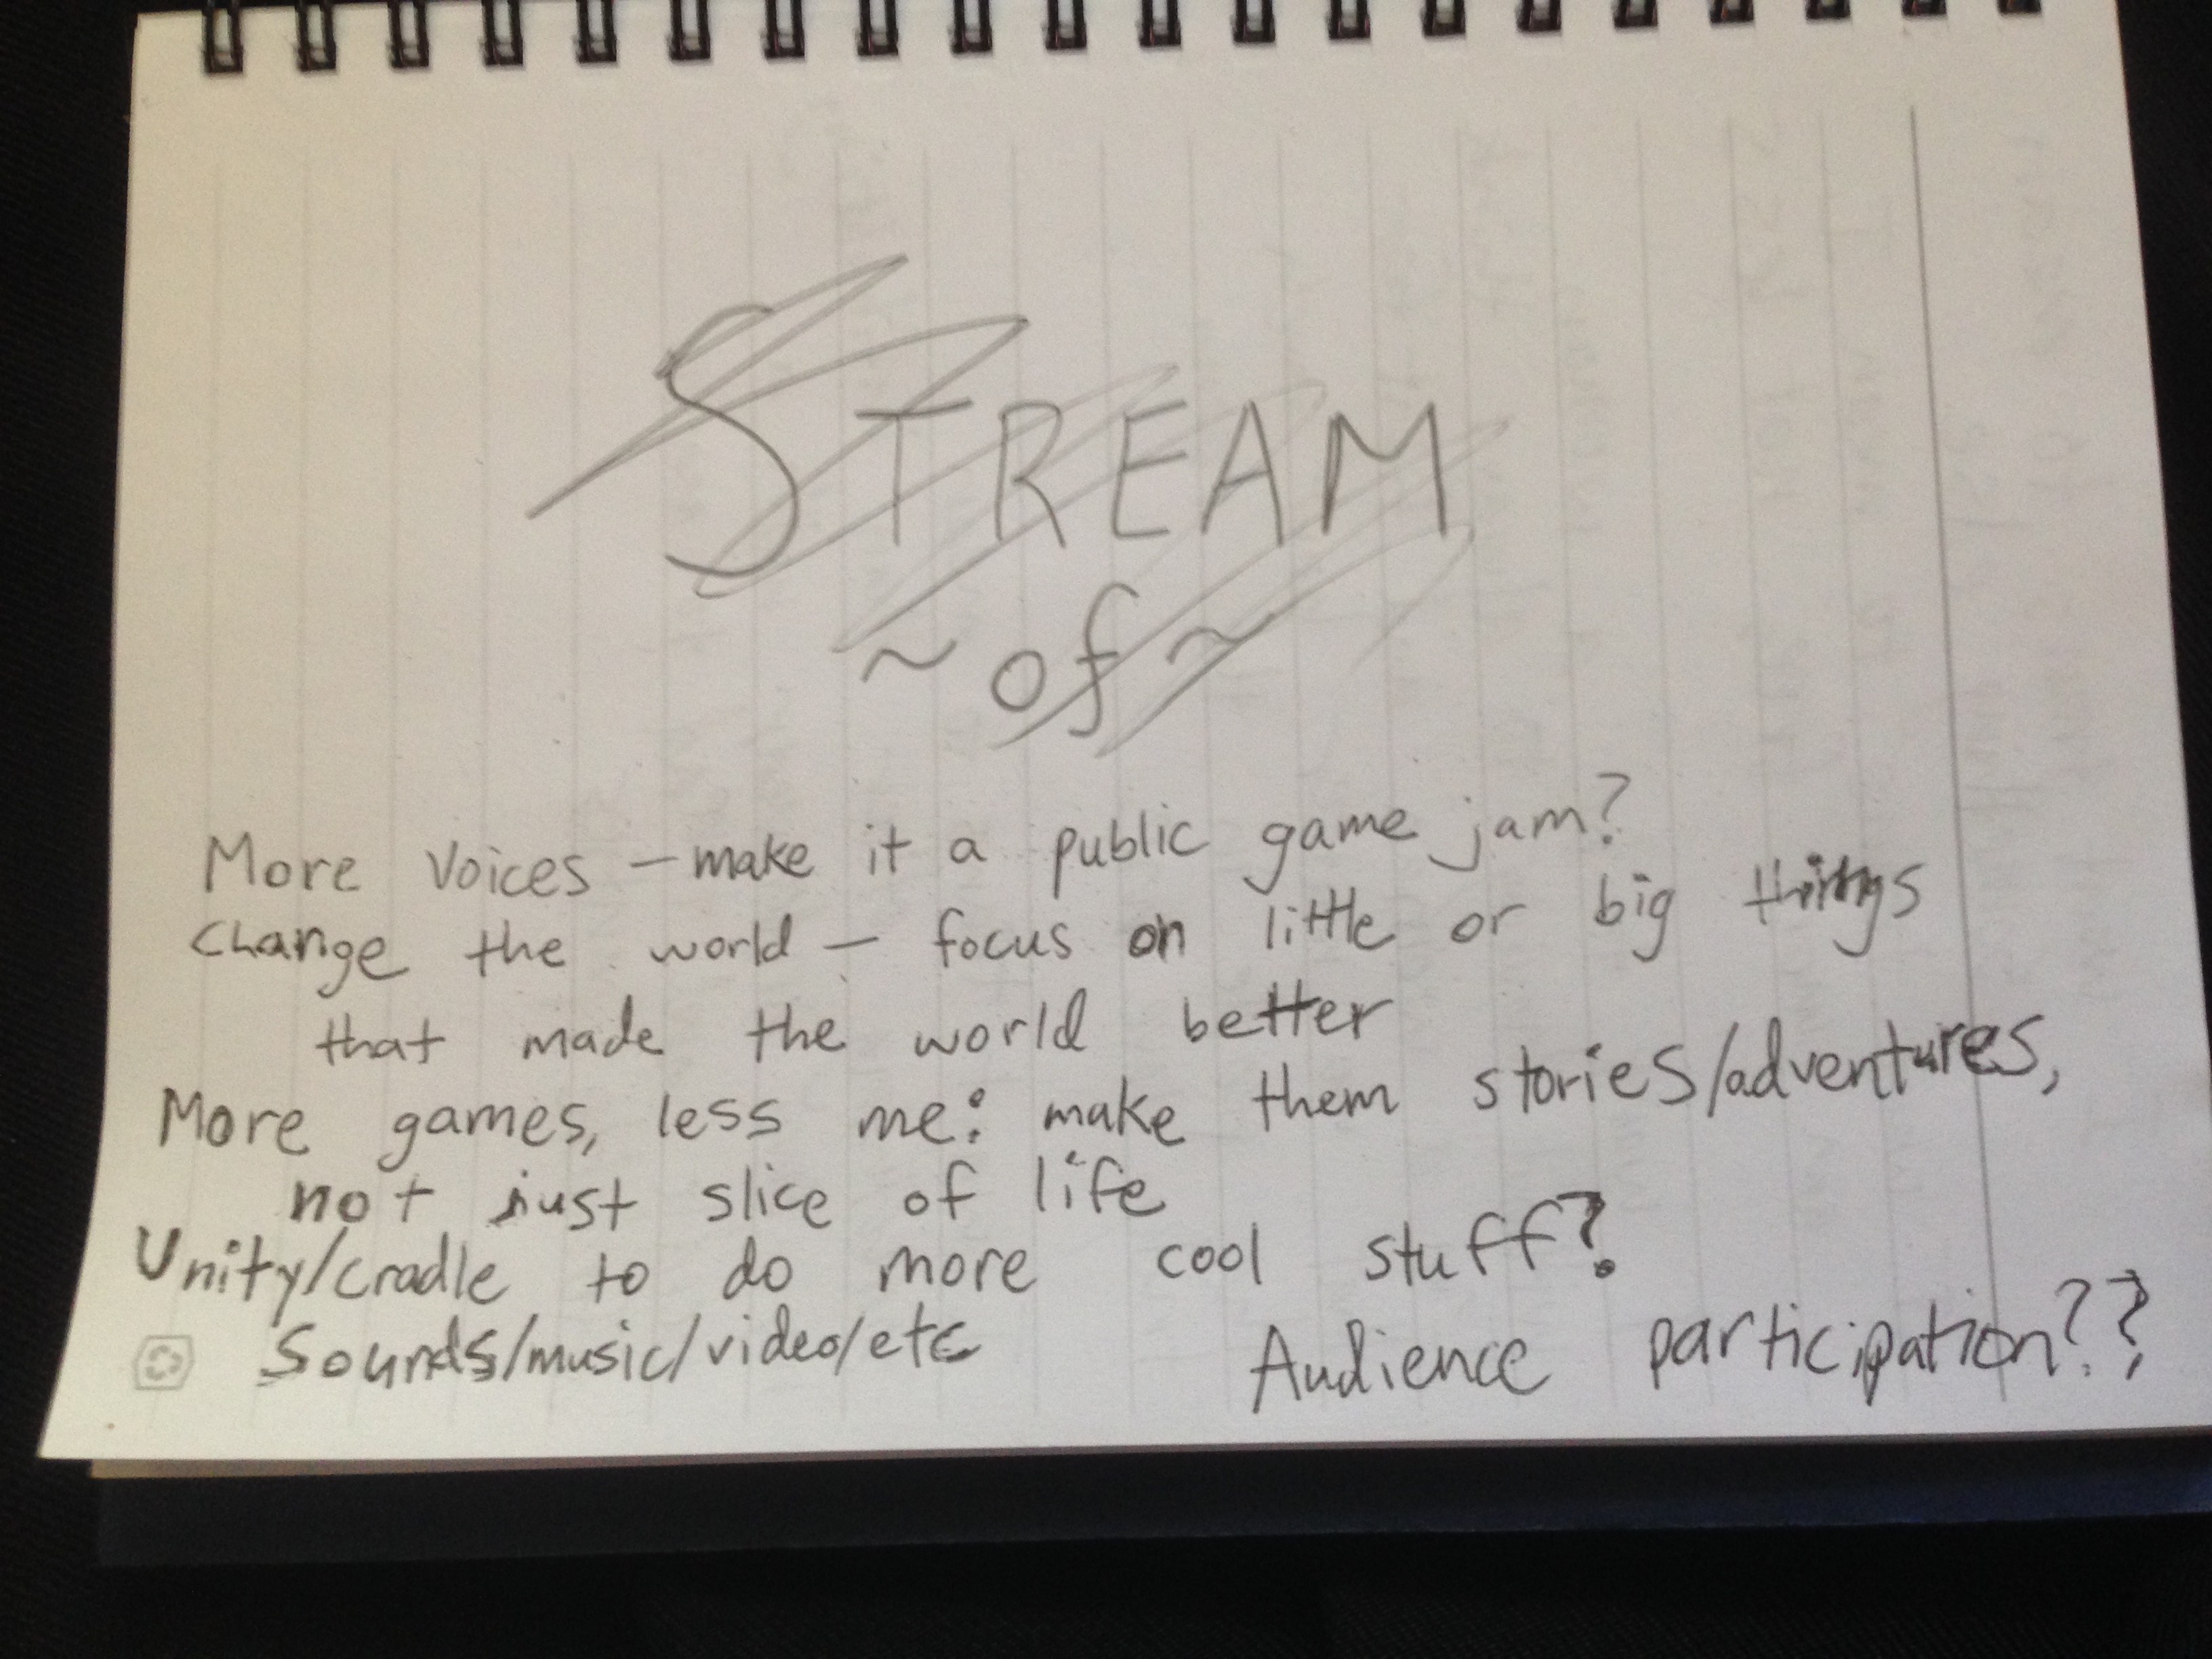 STREAM
~ of ~
More voices – make it a public game jam?
Change the world – focus on little or big things
that made the world better
More games, less me: make them stories/adventures,
not just slice of life
Unity/cradle to do more cool stuff?
Sounds/music/video/etc
Audience participation??